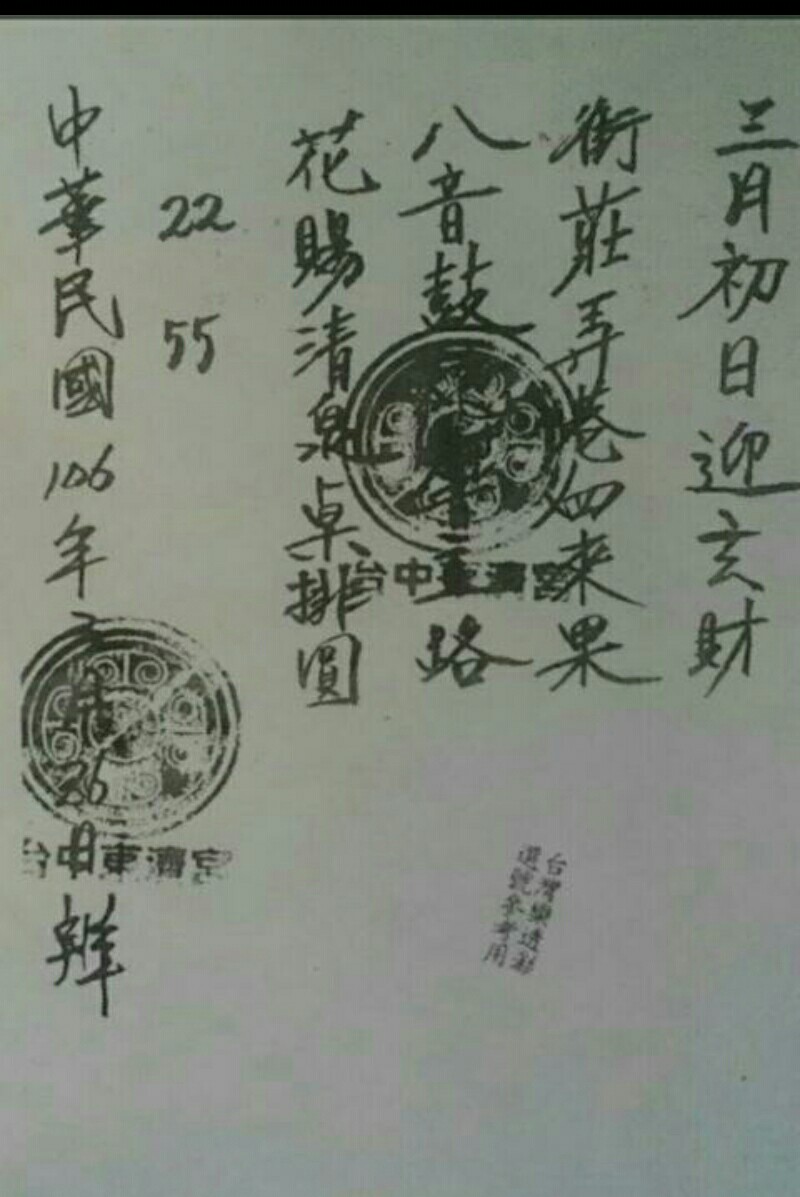 三月初日迎玄財
街莊弄巷四來果
八音鼓 年 路
花賜清泉桌排圓
22 55
中華民國106年 月26日
台中東濟宮
台中東濟宮
台灣樂透彩
選號參考用